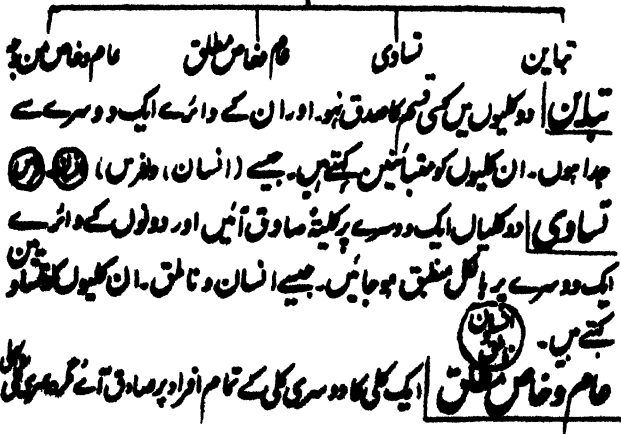 تباین تساوی عام وخاص مطلق عام وخاص من وجہ
تباین دو کلیوں میں کسی قسم کا صدق نہ ہو۔ اور ان کے دائرے ایک دوسرے سے
جدا ہوں۔ ان کلیوں کو متبائنین کہتے ہیں۔ جیسے (انسان، وفرس)
تساوی دو کلیاں ایک دوسرے پر کلیۃً صادق آئیں اور دونوں کے دائرے
ایک دوسرے پر بالکل منطبق ہو جائیں۔ جیسے انسان و ناطق۔ ان کلیوں کو متساویین
کہتے ہیں۔ انسان ناطق
عام وخاص مطلق ایک کلی کا دوسری کلی کے تمام افراد پر صادق آئے مگر دوسری کلی